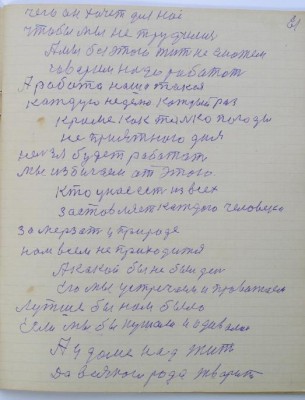 чего он хочет для нас
чтобы мы не трудились
А мы без этого жит не сможем
говорим надо работат
А работа наша такая
каждую неделю каждый раз
кроме как только погоды
не приятного дня
нельзя будет работат
мы избегаем от этого
кто у нас ест из всех
заставляет каждого человека
замерзат у природе
нам всем не приходится
А какой бы не был ден
его мы устречаем и проважаем
лутше бы нам было
если мы бы кушали и одевалис
А у доме над жит
да всякого рода творит